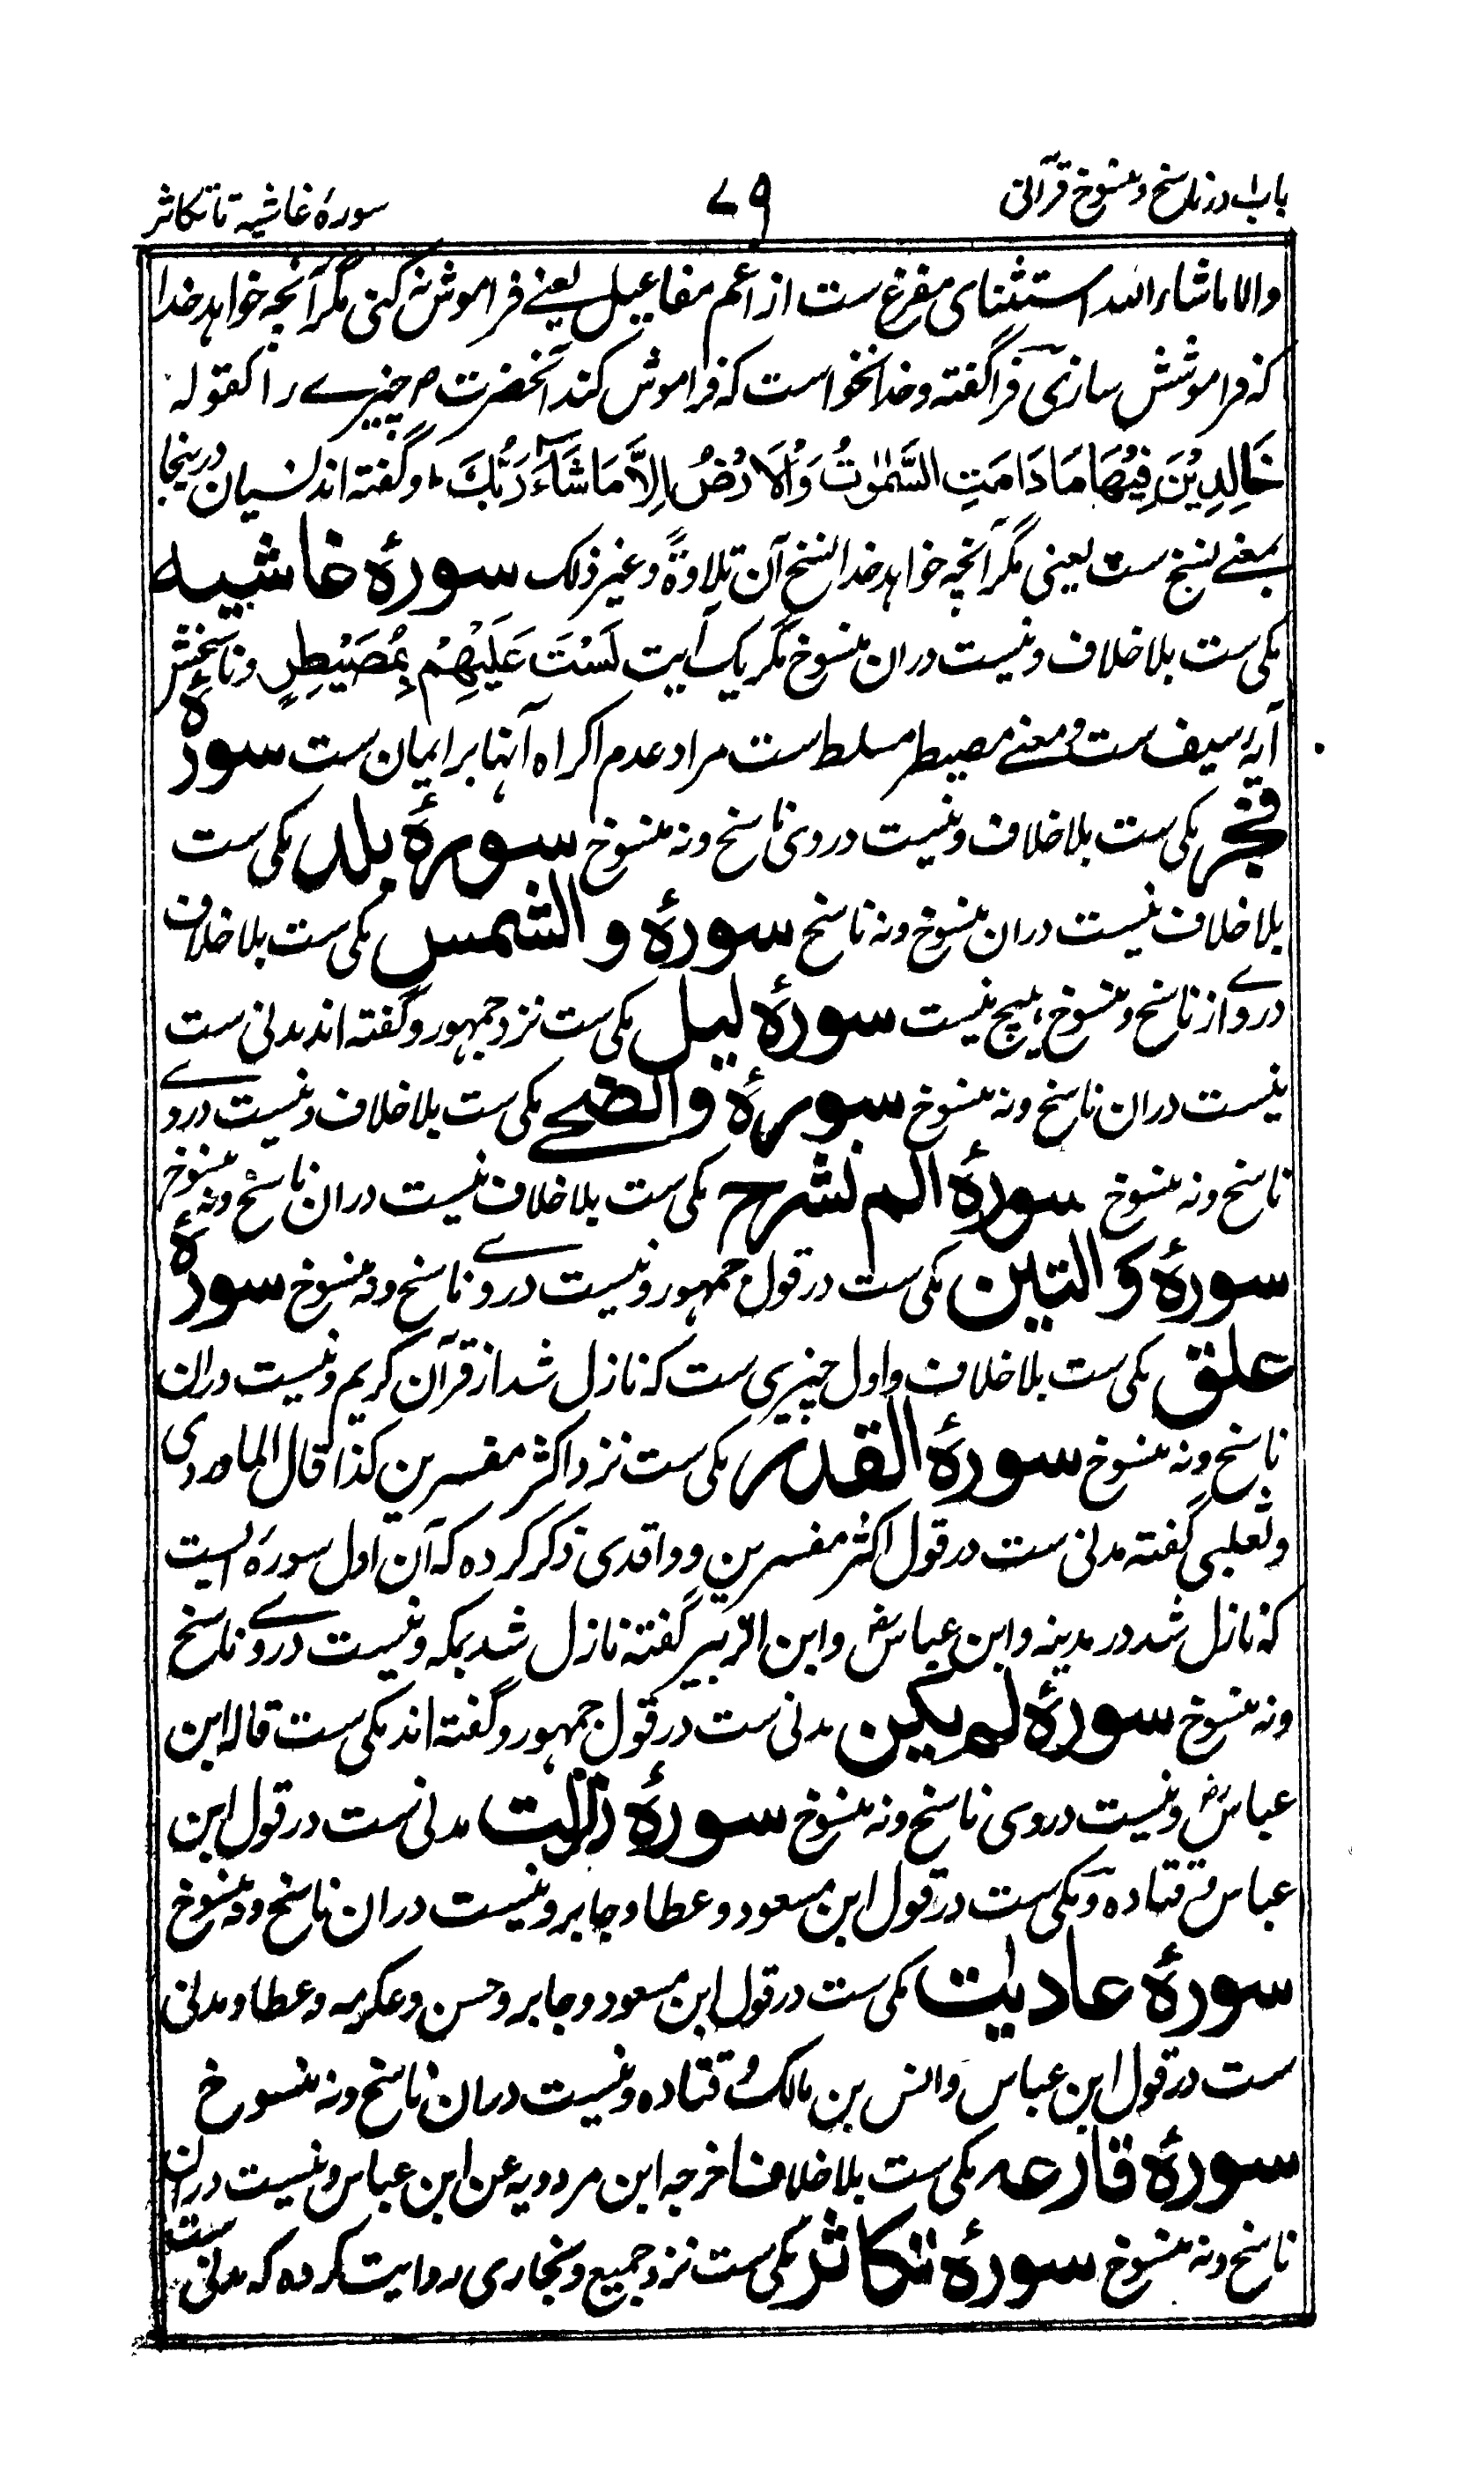 باب ۱ در ناسخ و منسوخ قرآنی
۷۹
سورۂ غاشیہ تا تکاثر
والا ما شاء اللہ استثنای مفرغ ست از اعم مفاعیل یعنے فراموش نہ کنی مگر آنچہ خواہد خدا
کہ فراموشش سازی فرا گفتہ و خدا نخواست کہ فراموش کند آنحضرت ص چیزے را کقولہ
خَالِدِيْنَ فِيْهَا مَا دَامَتِ السَّمٰوٰتُ وَالْاَرْضُ اِلَّا مَا شَآءَ رَبُّكَ، و گفتہ اند نسیان درینجا
بمعنے نسخ ست یعنی مگر آنچہ خواہد خدا نسخ آن تلاوۃً و غیر ذلک سورۂ غاشیہ
مکی ست بلا خلاف و نیست دران منسوخ مگر یک آیت لَسْتَ عَلَيْهِمْ بِمُصَيْطِرٍ و ناسخش
آیہ سیف ست و معنے مصیطر مسلط ست مراد عدم اکراہ آنہا بر ایمان ست سورۂ
فجر مکی ست بلا خلاف و نیست دروی ناسخ و نہ منسوخ سورۂ بلد مکی ست
بلا خلاف نیست دران منسوخ و نہ ناسخ سورۂ والشمس مکی ست بلا خلاف
دروے از ناسخ و منسوخ ہیچ نیست سورۂ لیل مکی ست نزد جمہور و گفتہ اند مدنی ست
نیست دران ناسخ و نہ منسوخ سورۂ والضحے مکی ست بلا خلاف و نیست دروے
ناسخ و نہ منسوخ سورۂ الم نشرح مکی ست بلا خلاف نیست دران ناسخ و نہ منسوخ
سورۂ والتین مکی ست در قول جمہور و نیست دروے ناسخ و نہ منسوخ سورۂ
علق مکی ست بلا خلاف و اول چیزی ست کہ نازل شد از قرآن کریم و نیست دران
ناسخ و نہ منسوخ سورۂ القدر مکی ست نزد اکثر مفسرین کذا قال الماوردی
و ثعلبی گفتہ مدنی ست در قول اکثر مفسرین و واقدی ذکر کردہ کہ آن اول سورہ ایست
کہ نازل شد در مدینہ و ابن عباس رض و ابن الزبیر گفتہ نازل شد بمکہ و نیست دروے ناسخ
و نہ منسوخ سورۂ لم یکن مدنی ست در قول جمہور و گفتہ اند مکی ست قالہ ابن
عباس رض و نیست دروی ناسخ و نہ منسوخ سورۂ زلزلت مدنی ست در قول ابن
عباس و قتادہ و مکی ست در قول ابن مسعود و عطا و جابر و نیست دران ناسخ و نہ منسوخ
سورۂ عادیات مکی ست در قول ابن مسعود و جابر و حسن و عکرمہ و عطا و مدنی
ست در قول ابن عباس و انس بن مالک و قتادہ و نیست دران ناسخ و نہ منسوخ
سورۂ قارعہ مکی ست بلا خلاف اخرجہ ابن مردویہ عن ابن عباس و نیست دران
ناسخ و نہ منسوخ سورۂ تکاثر مکی ست نزد جمیع و بخاری روایت کردہ کہ مدنی ست